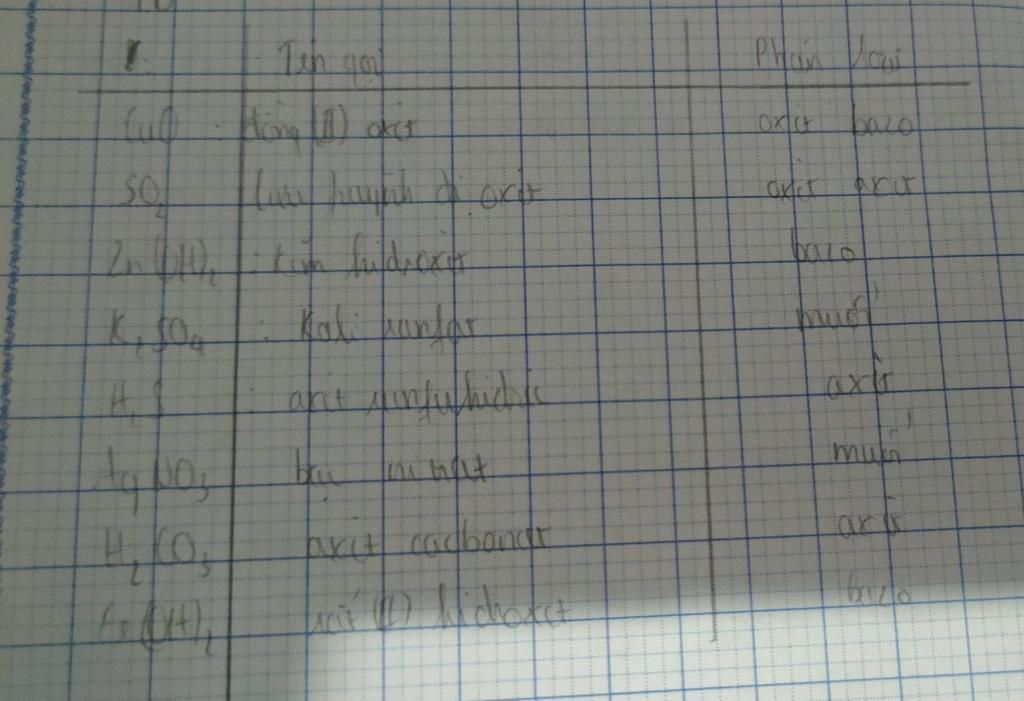 Tên gọi Phân loại
CuO : đồng (II) oxit oxit bazo
SO2 lưu huỳnh đi oxit oxit axit
Zn(OH)2 : kẽm hidroxit bazo
K2SO4 : Kali sunfat muối
H2S : axit sunfuhidric axit
AgNO3 bạc nitrat muối
H2CO3 axit cacbonat axit
Fe(OH)2 sắt (II) hidroxit bazo